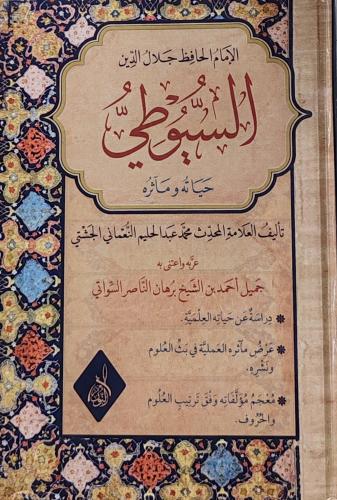 الإمام الحافظ جلال الدين
السُّيُوطِيُّ
حياته ومآثره
تأليف العلامة المحدث محمد عبد الحليم النعماني الجشتي
عربه واعتنى به
جميل أحمد بن الشيخ برهان الناصر السواتي
* دراسة عن حياته العلمية.
* عرض مآثره العملية في بث العلوم
ونشره.
* معجم مؤلفاته وفق ترتيب العلوم
والحروف.